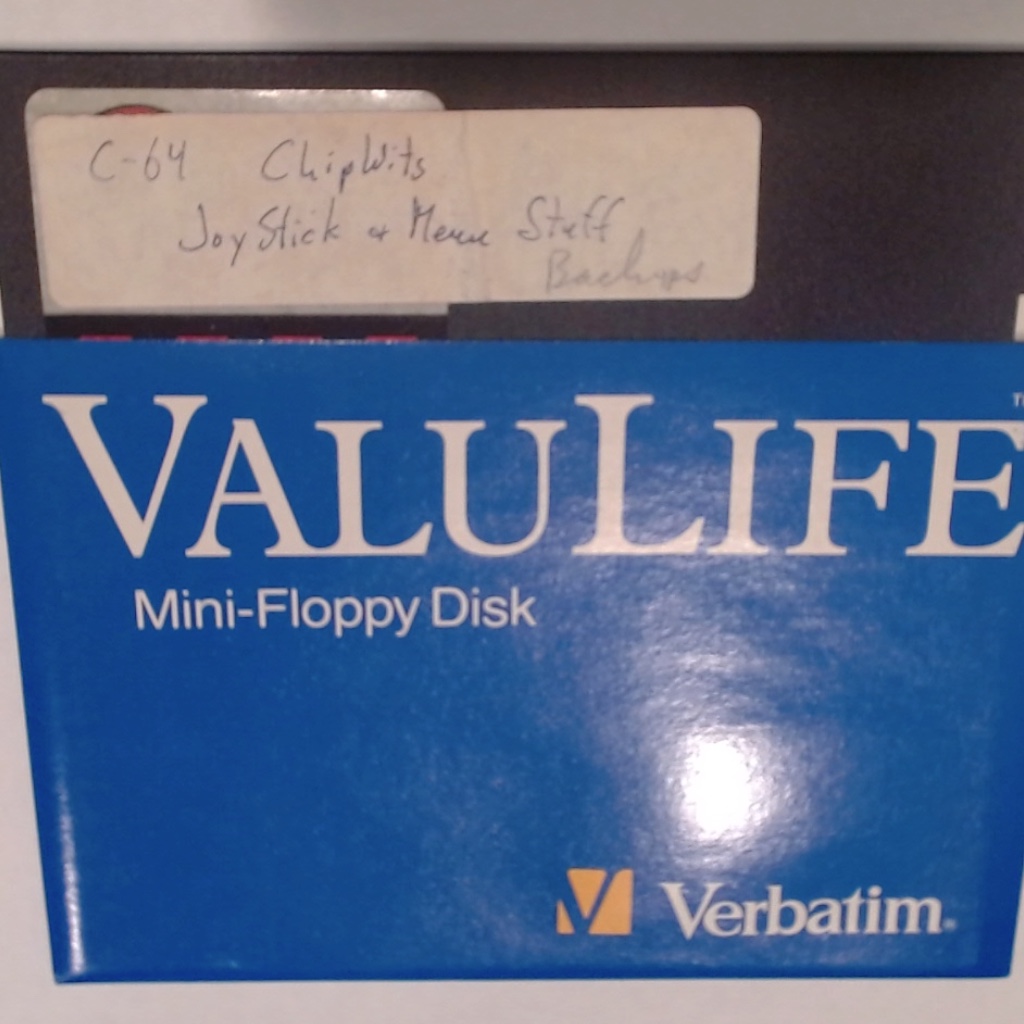 C-64 ChipWits
JoyStick & Menu Stuff
Backups
VALULIFE™
Mini-Floppy Disk
Verbatim®